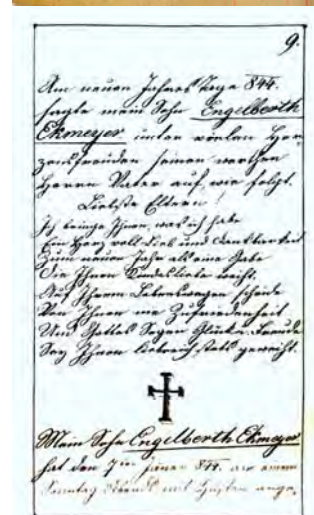 9.
Am neuen Jahres Tage 844.
sagte mein Sohn Engelberth
Ekmeyer unter vielen Her-
zensfreuden seinen werthen
Herren Vater auf, wie folgt.
Liebste Eltern!
Ich bringe Ihnen, was ich habe
Ein Herz voll Lieb und Dankbarkeit
Zum neuen Jahr als eine Gabe
Die Ihnen Kindesliebe weiht.
Auf Ihrem Lebenswegen scheide
Von Ihnen nie Zufriedenheit
Und Gottes Segen Glück u. Freude
Sey Ihnen liebreich stets geweiht.
Mein Sohn Engelberth Ekmeyer
hat den 7ten 844. an einem
Sonntag Abends mit Husten ange,